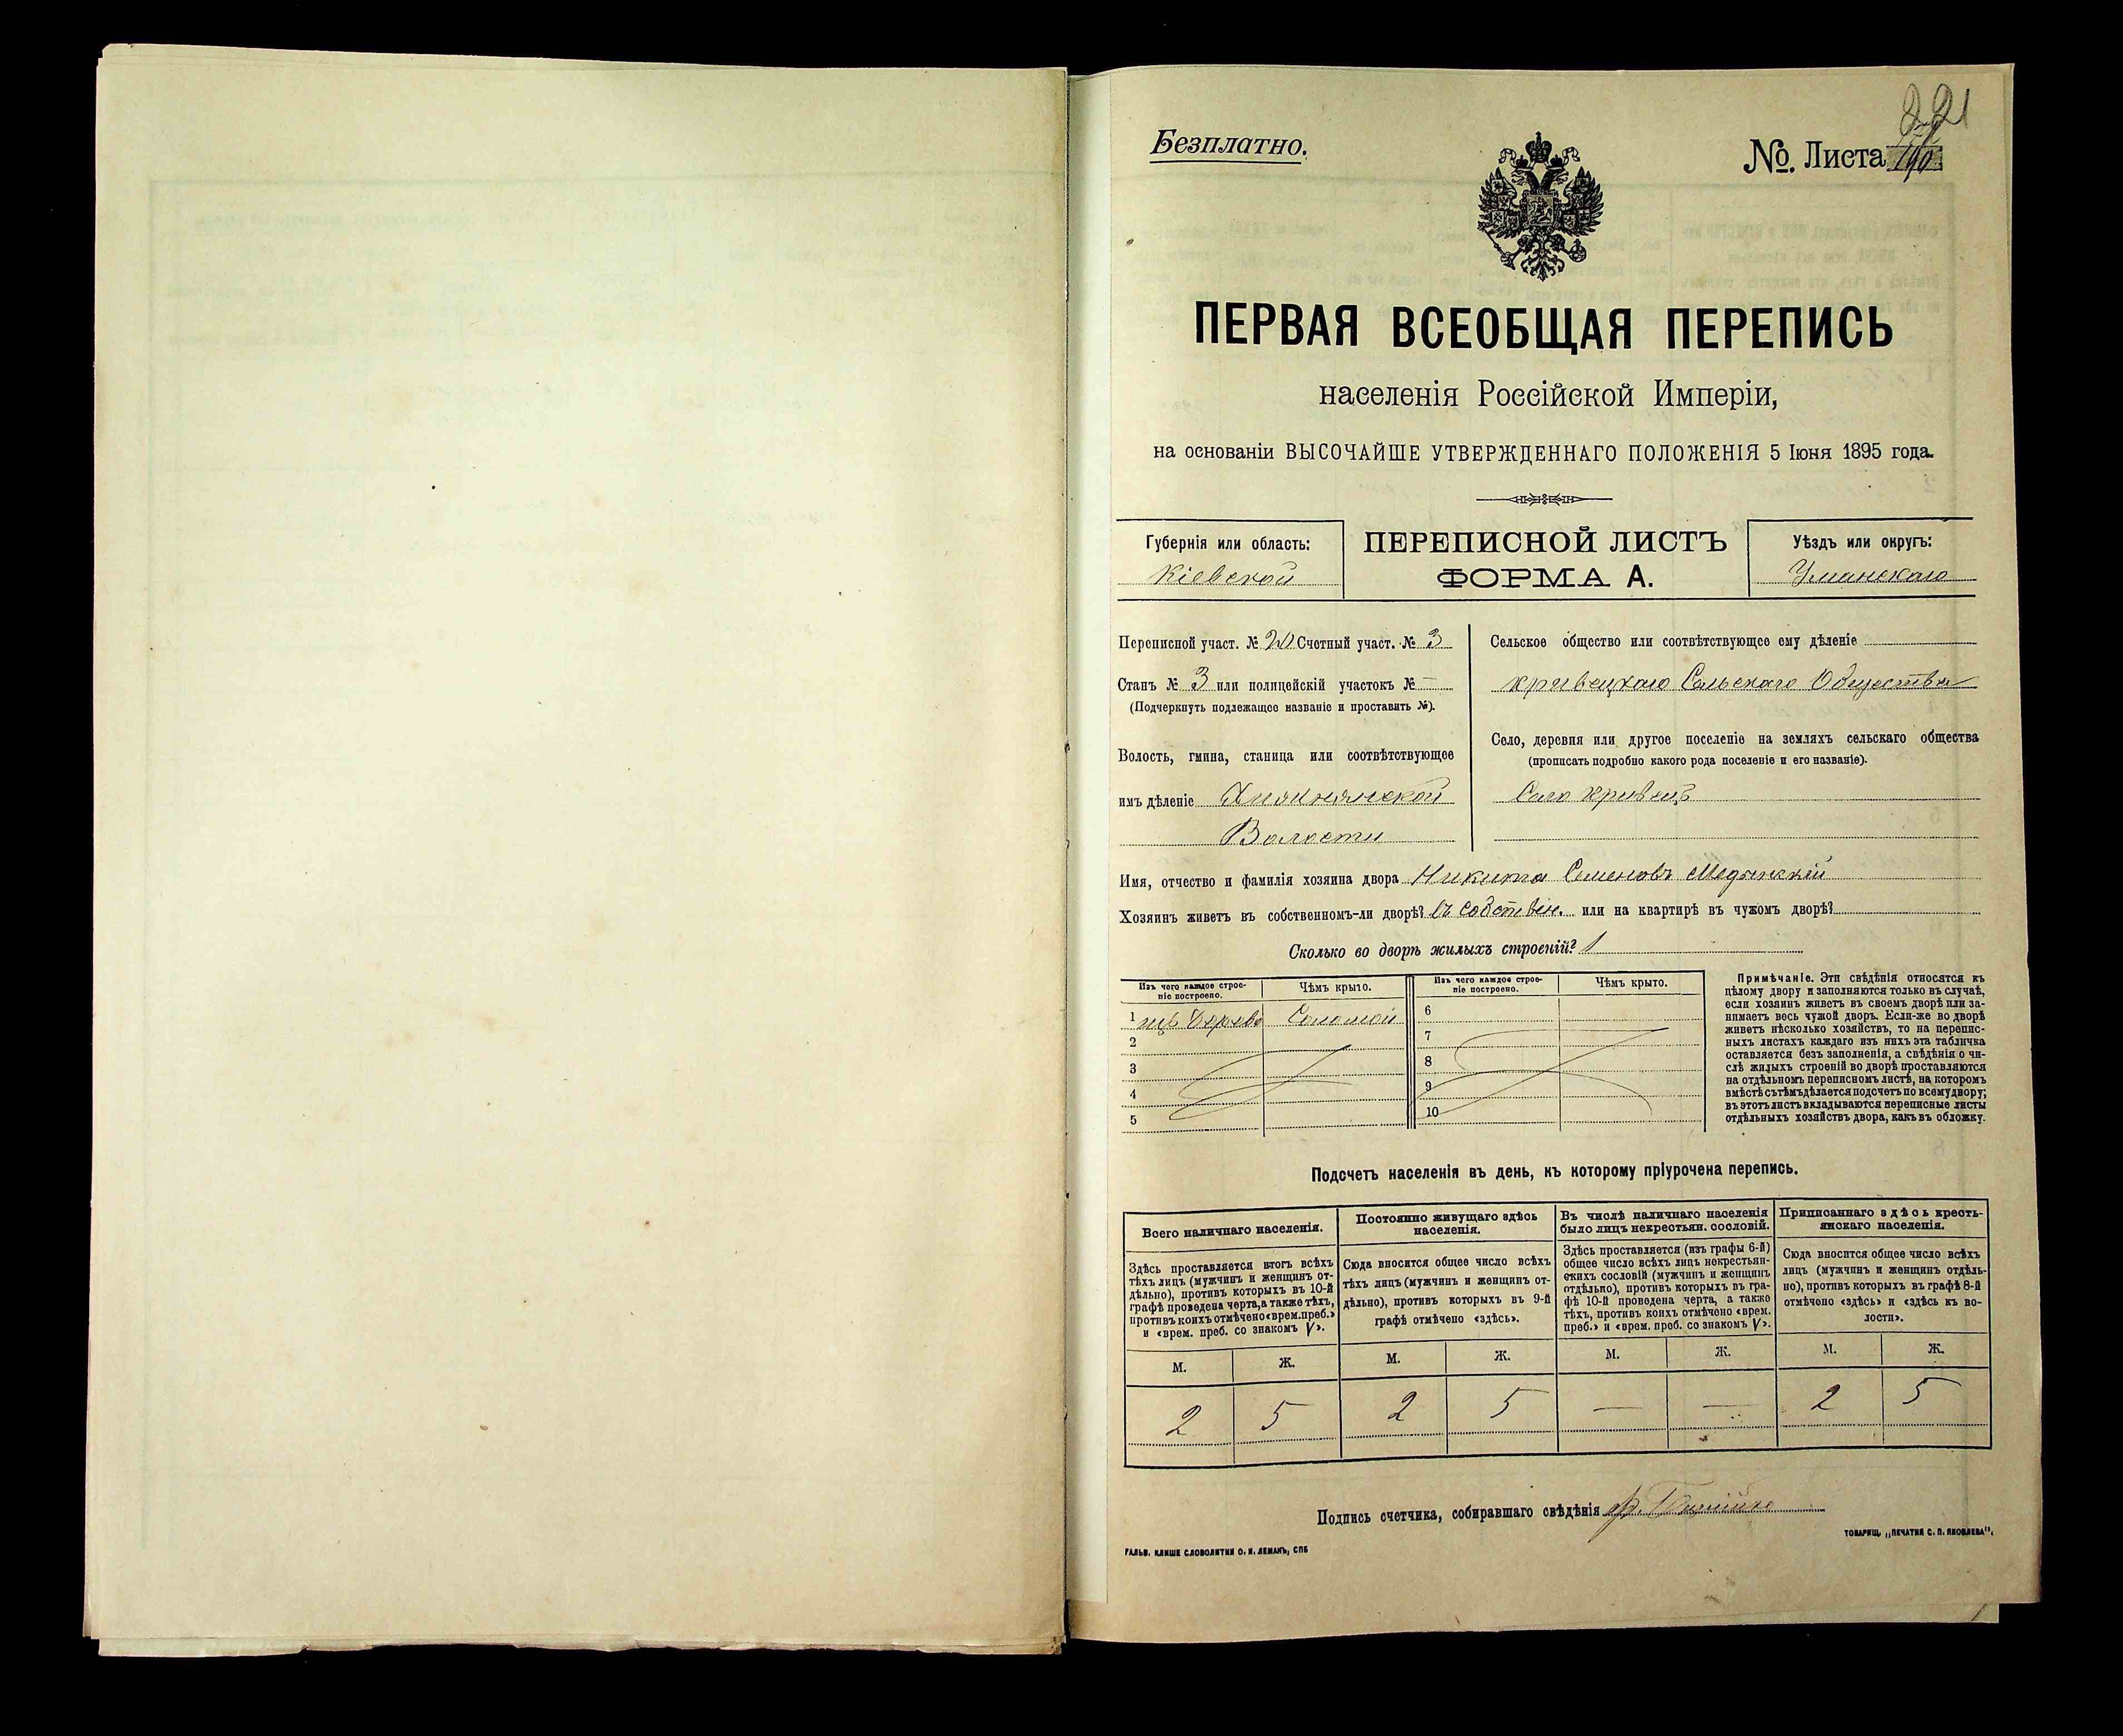 221
Безплатно.
№. Листа 190
ПЕРВАЯ ВСЕОБЩАЯ ПЕРЕПИСЬ
населенія Россійской Имперіи,
на основаніи ВЫСОЧАЙШЕ УТВЕРЖДЕННАГО ПОЛОЖЕНІЯ 5 Іюня 1895 года.
Губернія или область:
Кіевской
ПЕРЕПИСНОЙ ЛИСТЪ
ФОРМА А.
Уѣздъ или округъ:
Уманскаго
Переписной участ. № 20 Счетный участ. № 3
Станъ № 3 или полицейскій участокъ № —
(Подчеркнуть подлежащее названіе и проставить №).
Волость, гмина, станица или соотвѣтствующее
имъ дѣленіе
Волости
Сельское общество или соотвѣтствующее ему дѣленіе
Кривецкаго Сельскаго Общества
Село, деревня или другое поселеніе на земляхъ сельскаго общества
(прописать подробно какого рода поселеніе и его названіе).
Село Кривецъ
Имя, отчество и фамилія хозяина двора Никита Семеновъ
Хозяинъ живетъ въ собственномъ-ли дворѣ? въ собствен. или на квартирѣ въ чужомъ дворѣ?
Сколько во дворѣ жилыхъ строеній? 1
Изъ чего каждое строе-
ніе построено.
Чѣмъ крыто.
1 изъ дерева Соломой
2
3
4
5
Изъ чего каждое строе-
ніе построено.
Чѣмъ крыто.
6
7
8
9
10
Примѣчаніе. Эти свѣдѣнія относятся къ
цѣлому двору и заполняются только въ случаѣ,
если хозяинъ живетъ въ своемъ дворѣ или за-
нимаетъ весь чужой дворъ. Если-же во дворѣ
живетъ нѣсколько хозяйствъ, то на перепис-
ныхъ листахъ каждаго изъ нихъ эта табличка
оставляется безъ заполненія, а свѣдѣнія о чи-
слѣ жилыхъ строеній во дворѣ проставляются
на отдѣльномъ переписномъ листѣ, на которомъ
вмѣстѣ съ тѣмъ дѣлается подсчетъ по всему двору;
въ этотъ листъ вкладываются переписные листы
отдѣльныхъ хозяйствъ двора, какъ въ обложку.
Подсчетъ населенія въ день, къ которому пріурочена перепись.
Всего наличнаго населенія.
Здѣсь проставляется итогъ всѣхъ
тѣхъ лицъ (мужчинъ и женщинъ от-
дѣльно), противъ которыхъ въ 10-й
графѣ проведена черта, а также тѣхъ,
противъ коихъ отмѣчено «врем. преб.»
и «врем. преб. со знакомъ V».
М. Ж.
2 5
Постоянно живущаго здѣсь
населенія.
Сюда вносится общее число всѣхъ
тѣхъ лицъ (мужчинъ и женщинъ от-
дѣльно), противъ которыхъ въ 9-й
графѣ отмѣчено «здѣсь».
М. Ж.
2 5
Въ числѣ наличнаго населенія
было лицъ некрестьян. сословій.
Здѣсь проставляется (изъ графы 6-й)
общее число всѣхъ лицъ некрестьян-
скихъ сословій (мужчинъ и женщинъ
отдѣльно), противъ которыхъ въ гра-
фѣ 10-й проведена черта, а также
тѣхъ, противъ коихъ отмѣчено «врем.
преб.» и «врем. преб. со знакомъ V».
М. Ж.
— —
Приписаннаго здѣсь кресть-
янскаго населенія.
Сюда вносится общее число всѣхъ
лицъ (мужчинъ и женщинъ отдѣль-
но), противъ которыхъ въ графѣ 8-й
отмѣчено «здѣсь» и «здѣсь къ во-
лости».
М. Ж.
2 5
Подпись счетчика, собиравшаго свѣдѣнія
ТОВАРИЩ. „ПЕЧАТНЯ С. П. ЯКОВЛЕВА".
ГАЛЬВ. КЛИШЕ СЛОВОЛИТНИ О. И. ЛЕМАНЪ, СПБ